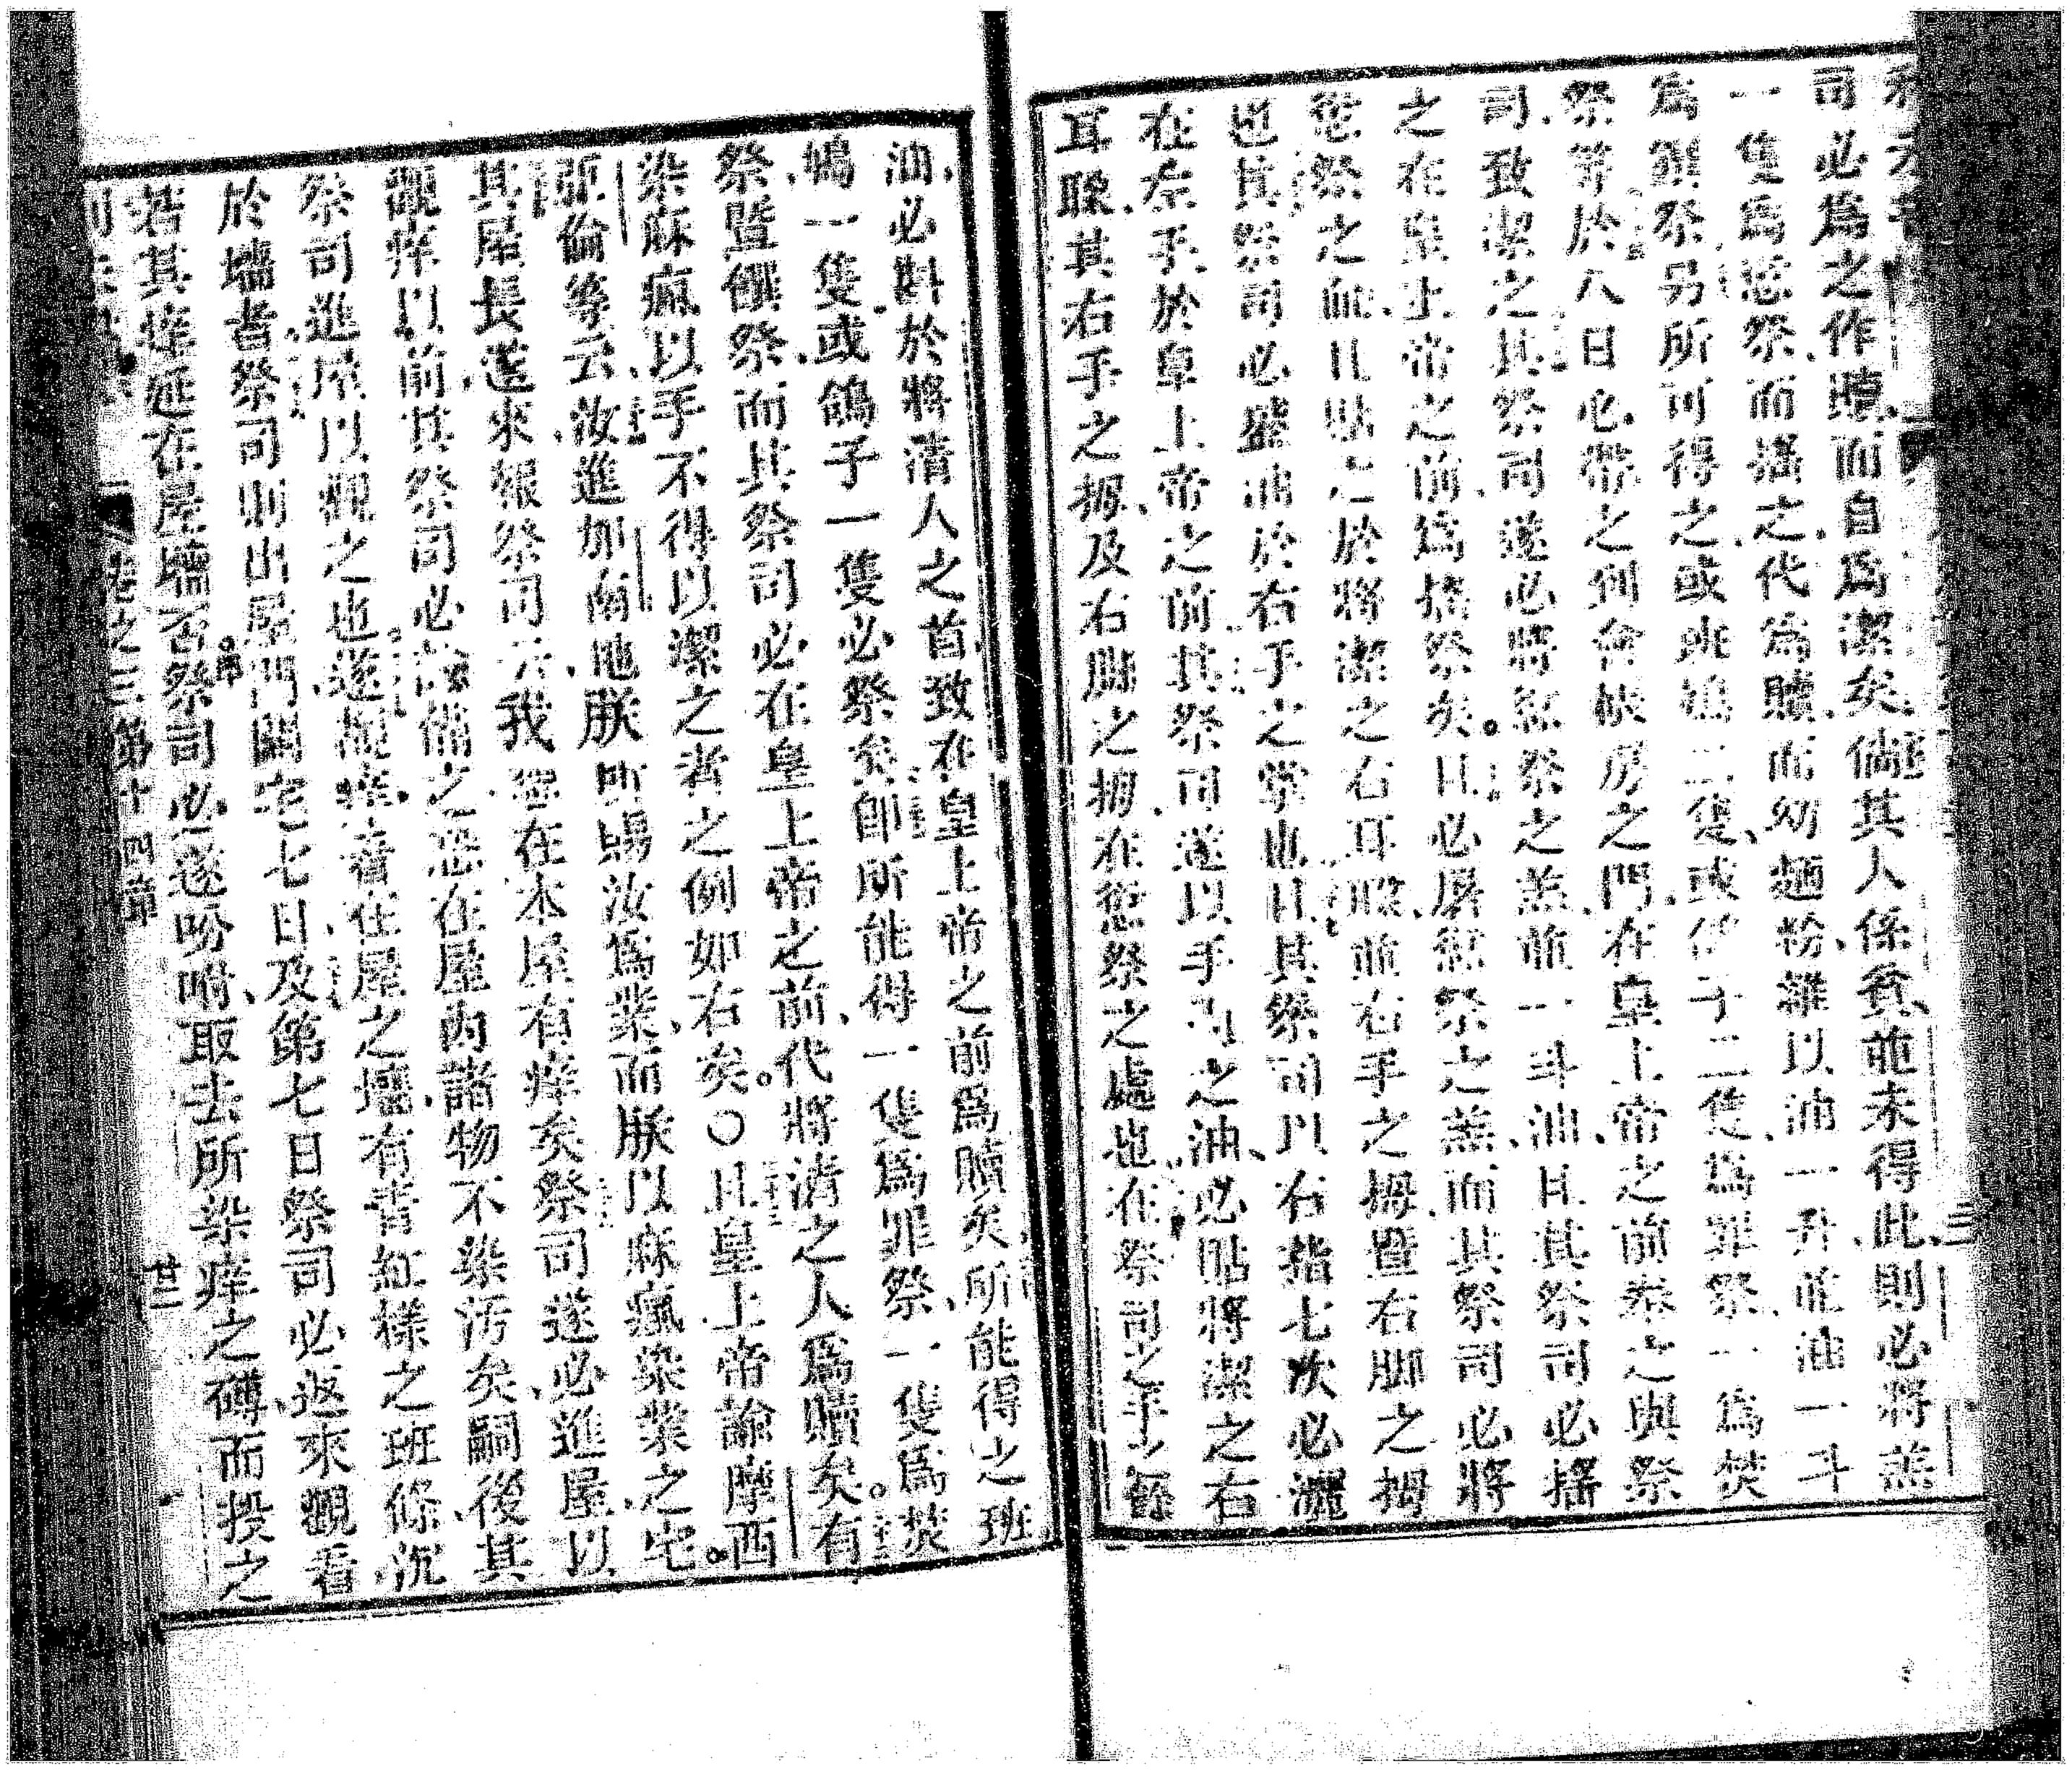 司必爲之作贖而自爲潔矣倘其人係貧並未得此則必將羔
一隻爲愆祭而搖之代爲贖而幼麵粉雜以油一升並油一斗
爲饌祭另所可得之或班鳩二隻或鴿子二隻爲罪祭一爲焚
祭等於八日必帶之到會帳房之門在皇上帝之前奉之與祭
司致潔之其祭司遂必將愆祭之羔並一斗油且其祭司必搖
之在皇上帝之前爲搖祭矣且必屠愆祭之羔而其祭司必將
愆祭之血且貼之於將潔之右耳朶並右手之拇暨右脚之拇
也其祭司必盛油於右手之掌也且其祭司以右指七次必灑
在左手於皇上帝之前其祭司遂以手內之油必貼將潔之右
耳朶其右手之拇及右脚之拇在愆祭之處也在祭司之手之餘
油必斟於將清人之首致在皇上帝之前爲贖矣所能得之班
鳩一隻或鴿子一隻必祭矣卽所能得一隻爲罪祭一隻爲焚
祭暨饌祭而其祭司必在皇上帝之前代將清之人爲贖矣有
染痳瘋以手不得以潔之者之例如右矣○且皇上帝諭摩西
亞倫等云汝進加南地朕所賜汝爲業而朕以痳瘋染業之宅
其屋長遂來報祭司云我想在本屋有痒矣祭司遂必進屋以
觀痒以前其祭司必令備之恐在屋內諸物不染汚矣嗣後其
祭司進屋以觀之也遂觀痒若在屋之墻有青紅樣之班條沉
於墻者祭司則出屋門關宅七日及第七日祭司必返來觀看
若其痒延在屋墻否祭司必遂吩咐取去所染痒之磚而投之
卷之三第十四章
廿二